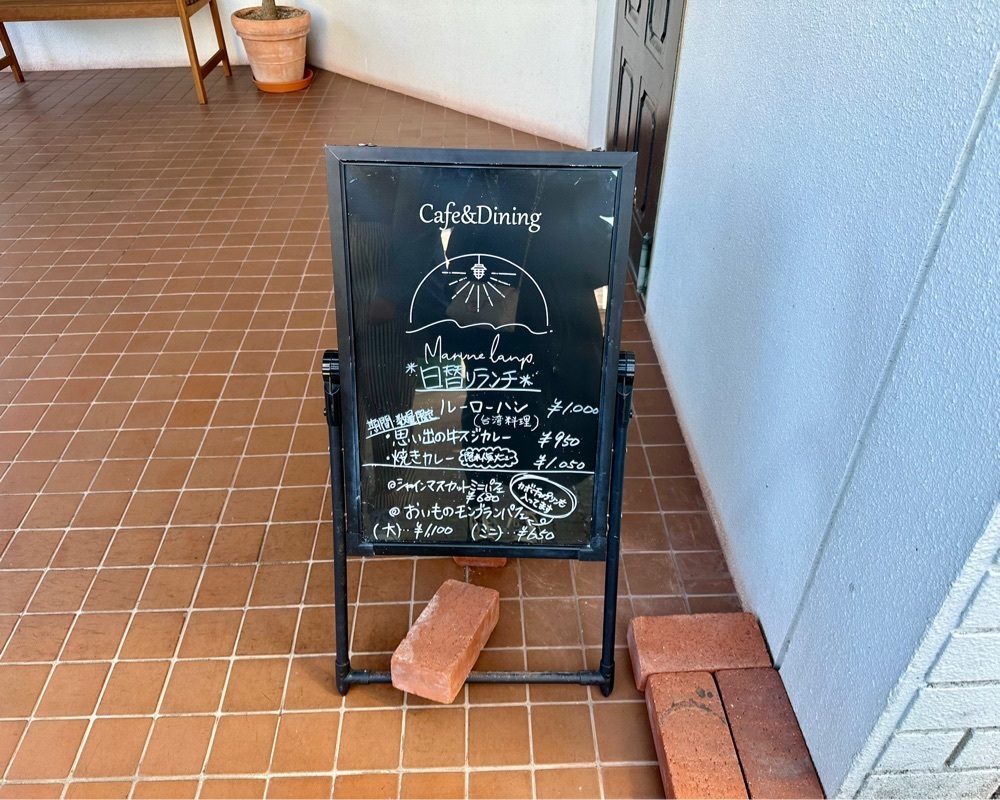 Cafe&Dining
Marine lamp.
*日替りランチ*
ルーローハン ¥1.000
(台湾料理)
期間・数量限定
・思い出の牛スジカレー ¥950
・焼きカレー ¥1.050
◎シャインマスカットミニパフェ
¥680
かぼちゃプリンも
入ってます
◎おいものモンブランパフェ
(大)‥¥1,100 (ミニ)‥¥650